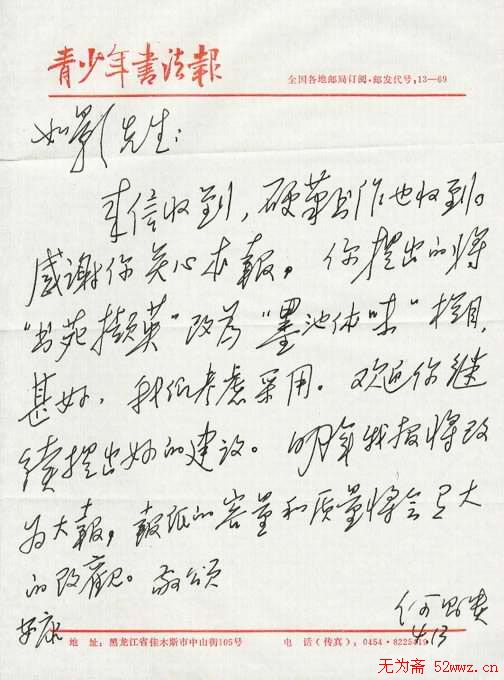 青少年书法报
全国各地邮局订阅·邮发代号,13—69
如影先生:
来信收到,硬笔书作也收到。
感谢你关心本報,你提出的将
“书苑撷英”改为“墨池体味”栏目,
甚好,我们考虑采用。欢迎你继
续提出好的建设。明年我报将改
为大報,報纸的容量和质量将会有大
的改觀。敬颂
安康
4.13
地 址:黑龙江省佳木斯市中山街105号 电 话(传真),0454·8225419
无为斋 52wwz.cn